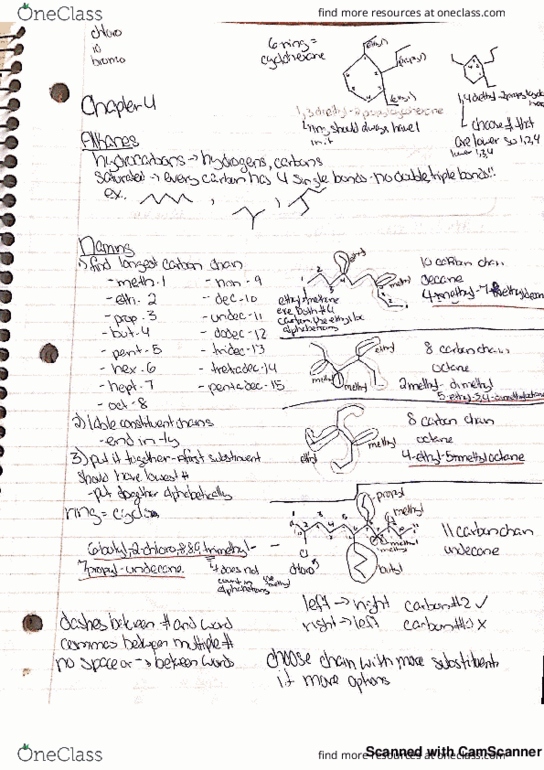 OneClass
find more resources at oneclass.com
chloro
io
bromo
6 ring =
cyclohexane
(ethyl)
(propyl)
(ethyl)
1,3 diethyl-2 propylcyclohexane
ring should always have 1
in it
choose # that
are lower so 1,2,4
lower 1,3,4
Chapter 4
Alkanes
hydrocarbons → hydrogens, carbons
saturated → every carbon has 4 single bonds - no double, triple bonds!!
ex.
Naming
1) find longest carbon chain
- meth - 1
- eth - 2
- prop - 3
- but - 4
- pent - 5
- hex - 6
- hept - 7
- oct - 8
- non - 9
- dec - 10
- undec - 11
- dodec - 12
- tridec - 13
- tretradec - 14
- pentadec - 15
ethyl
methyl
10 carbon chain
decane
alphabetical
ethyl
methyl
methyl
8 carbon chain
octane
2 methyl - dimethyl
ethyl
methyl
8 carbon chain
octane
4-ethyl-5 methyl octane
- end in -yl
3) put it together - first substituent
should have lowest #
- put together alphabetically
ring = cyclo
propyl
methyl
methyl
methyl
butyl
Cl
chloro
11 carbon chain
undecane
6 butyl, 2-chloro, 8,8,9, trimethyl -
7 propyl-undecane.
does not
left → right carbon #2 ✓
right → left
dashes between # and word
commas between multiple #
no space or - between words
choose chain with more substituents
if more options
OneClass
find more resources at oneclass.com
Scanned with CamScanner